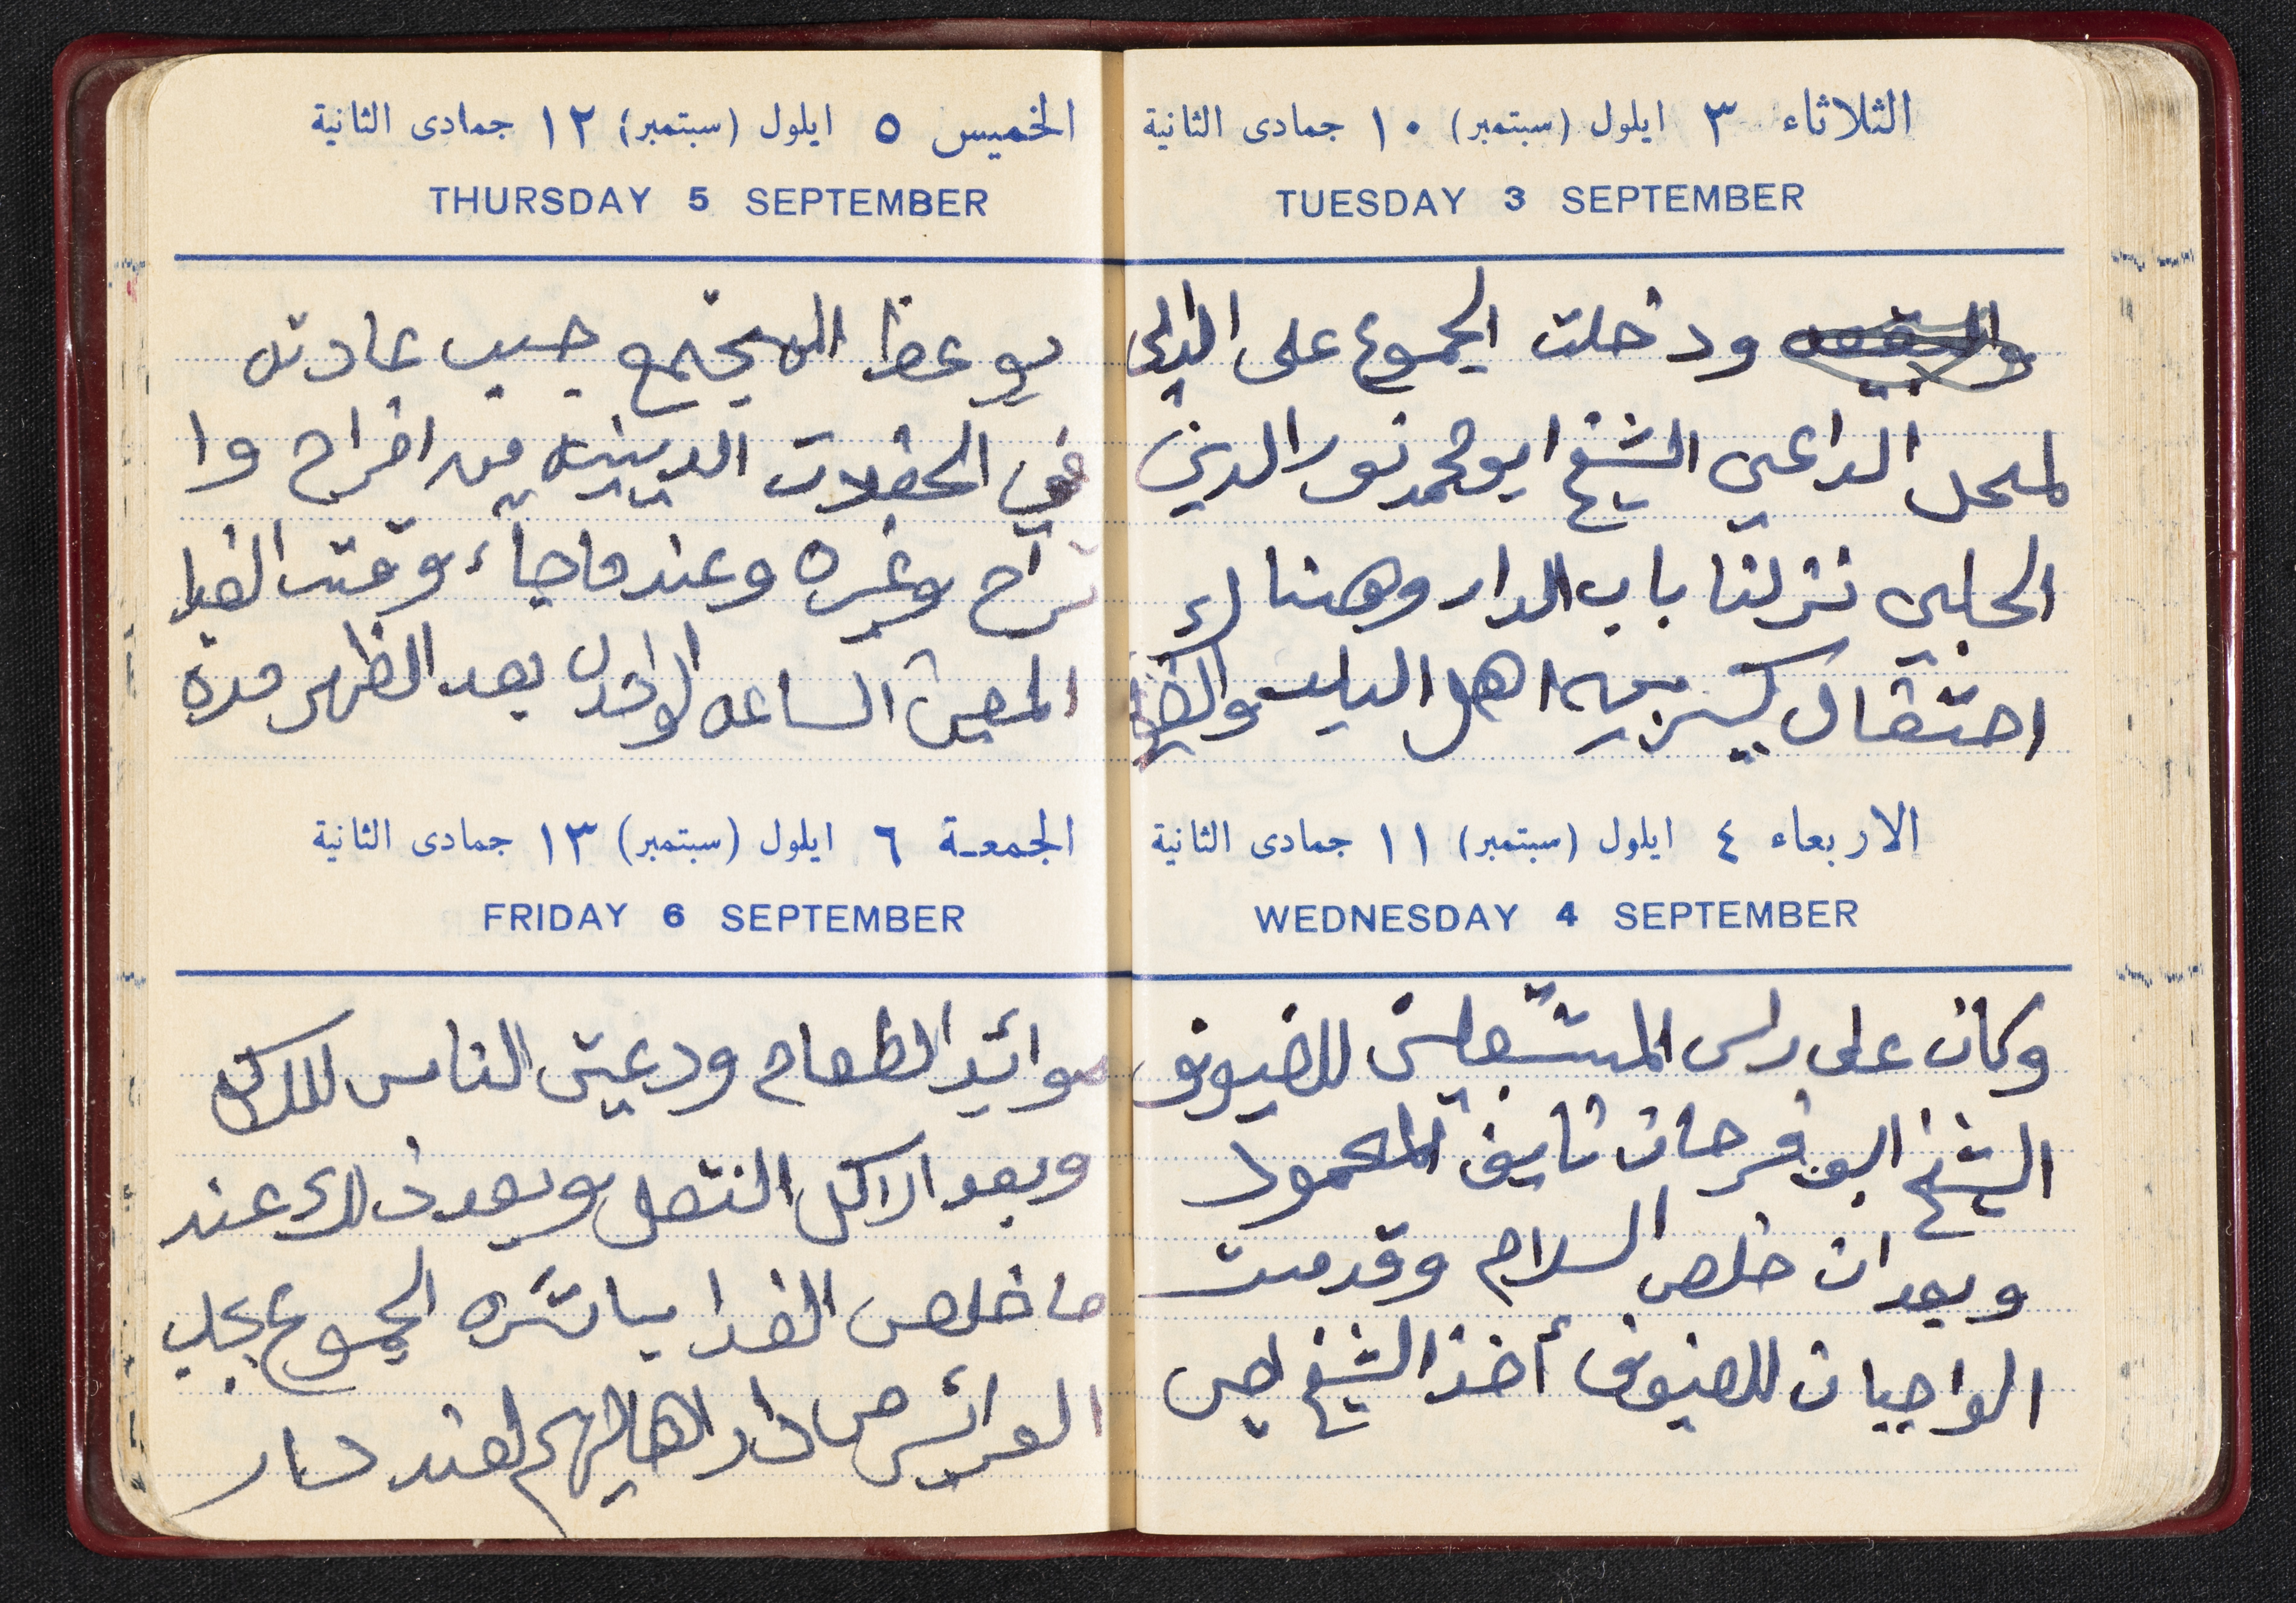 الثلاثاء ٣ ايلول (سبتمبر) ١٠ جمادى الثانية
TUESDAY 3 SEPTEMBER
ودخلت الجموع على
لمحل الداعي الشيخ ابو محمد نور الدين
الحلبي نزلنا باب الدار وهناك
احتفال كبير من اهل البلد
الاربعاء ٤ ايلول (سبتمبر) ١١ جمادى الثانية
WEDNESDAY 4 SEPTEMBER
وكان على راس المستقبلين للضيوف
الشيخ ابو فرحان نايف المحمود
وبعد ان خلص السلام وقدمت
الواجبات للضيوف أخذ الشيخ
الخميس ٥ ايلول (سبتمبر) ١٢ جمادى الثانية
THURSDAY 5 SEPTEMBER
يوعظ المجتمع حسب عادته
في الحفلات الدينيه من افراح وا
تراح وغيره وعندما جاء وقت الغدا
المعين الساعه الواحده بعد الظهر مدة
الجمعـة ٦ ايلول (سبتمبر) ١٣ جمادى الثانية
FRIDAY 6 SEPTEMBER
موائد الطعام ودعيت الناس للاكل
وبعد الاكل وبعد ذلك عند
ما خلص الغدا باشره الجموع بجلب
العرائس من دار اهاليهم لعند دار